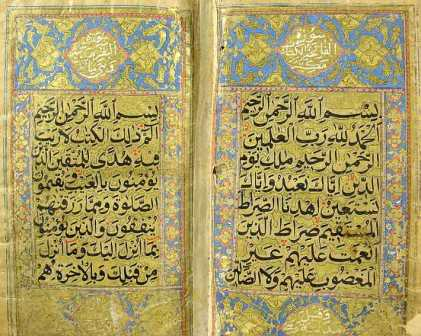 سورة
الفاتحة
بسم الله الرحمن الرحيم
الحمد لله رب العلمين
الرحمن الرحيم ملك يوم
الدين اياك نعبد واياك
نستعين اهدنا الصراط
المستقيم صراط الذين
انعمت عليهم غير
المغضوب عليهم ولا الضالين
بسم الله الرحمن الرحيم
الم ذلك الكتب لا ريب
فيه هدى للمتقين الذين
يؤمنون بالغيب ويقيمون
الصلوة ومما رزقنهم
ينفقون والذين يؤمنون
بما انزل اليك وما انزل
من قبلك وبالاخرة هم